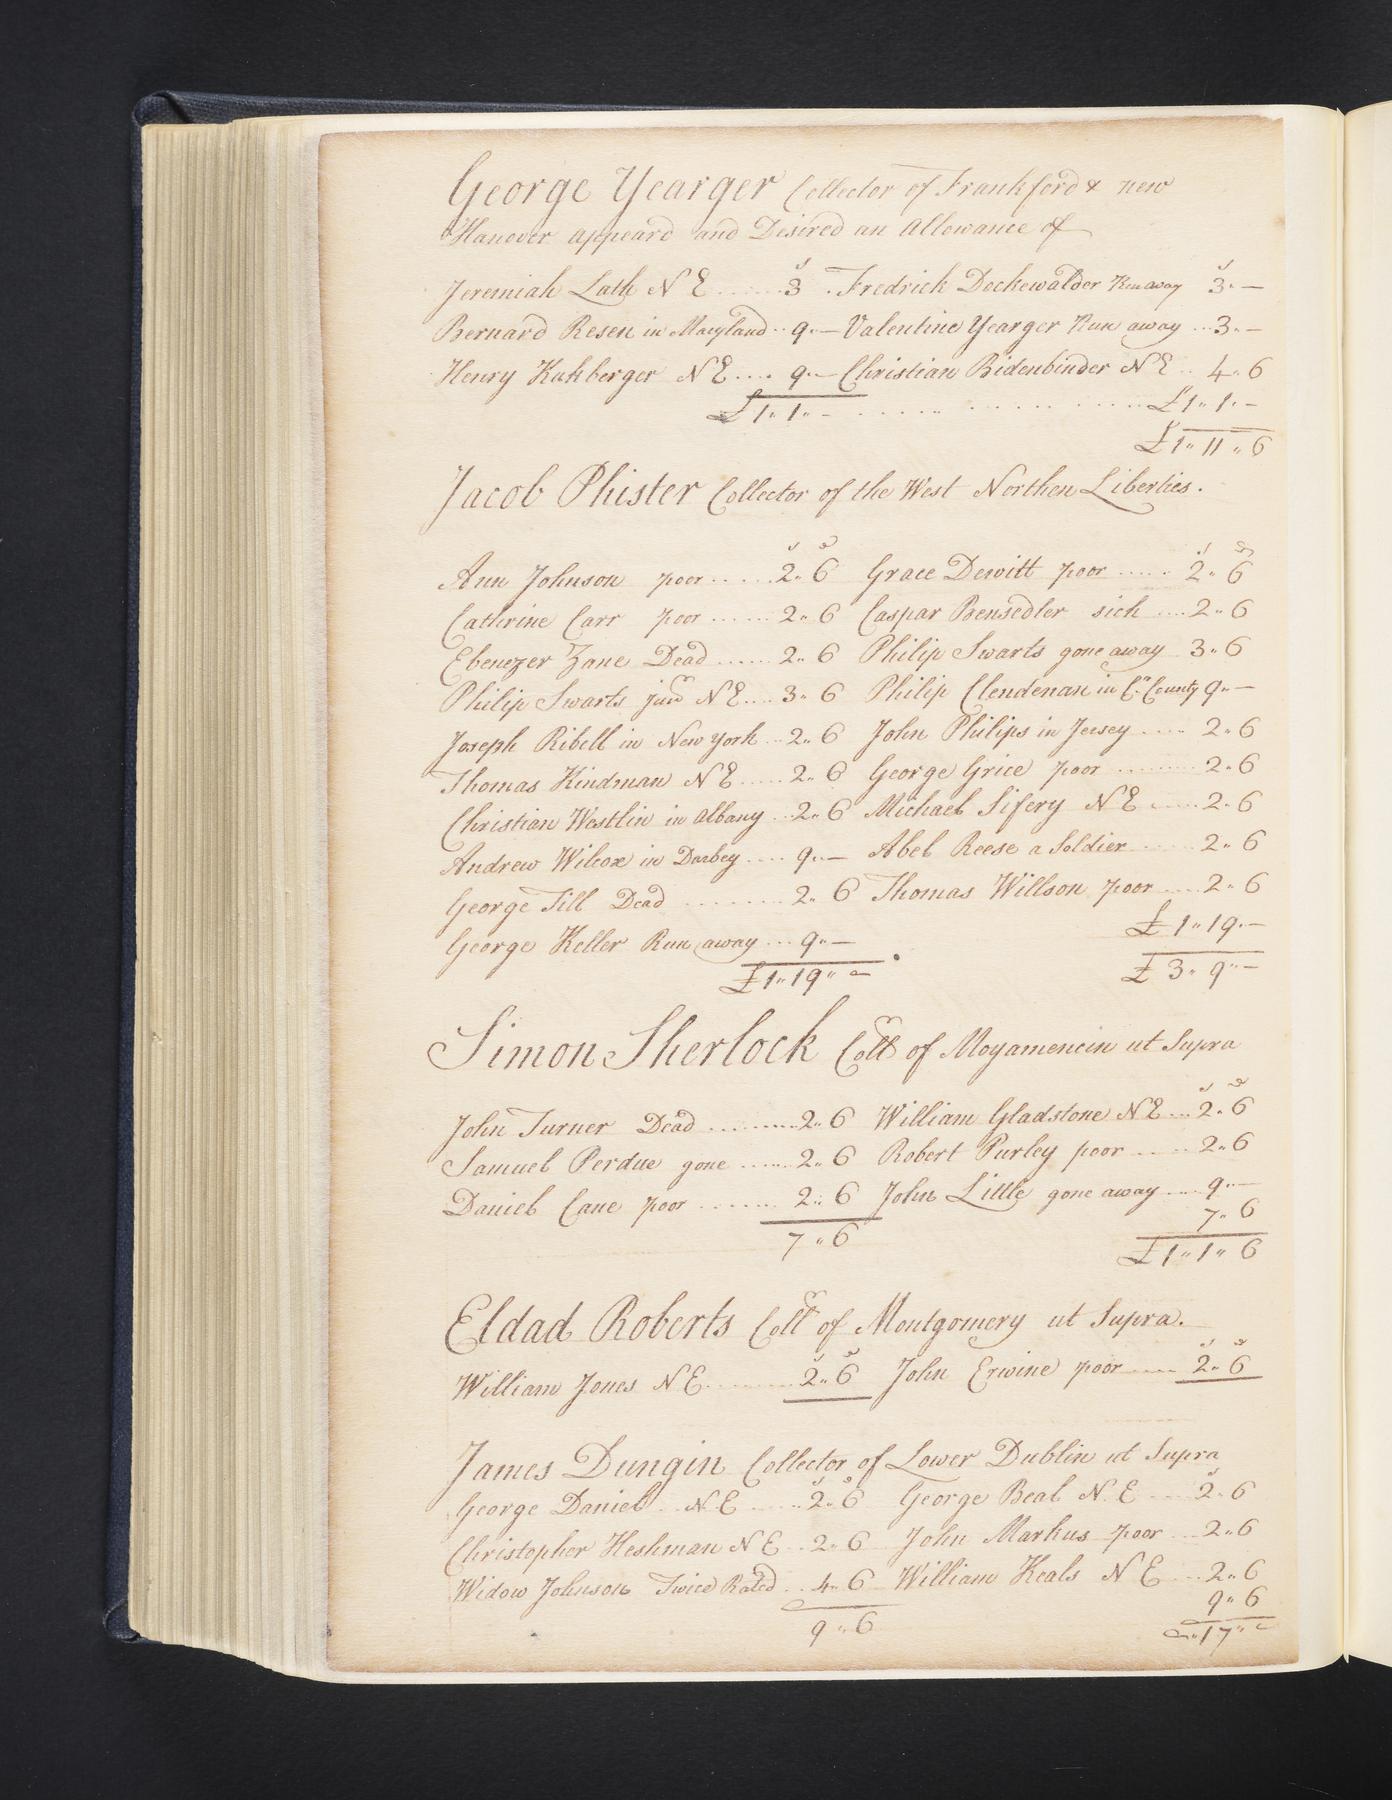 George Yearger Collector of Frankford & new
Hanover appeard and Desired an Allowance of
s s
Jeremiah Lath N E ....... 3 . Fredrick Deckewalder Run away 3"—
Bernard Resen in Maryland .. 9"— Valentine Yearger Run away ... 3"—
Henry Kuhberger N E .... 9"— Christian Bidenbinder N E .. 4"6
£1"1"— ............ £1"1"—
£1"11"6
Jacob Phister Collector of the West Northen Liberties.
s d s d
Ann Johnson poor ...... 2"6 Grace Dewitt poor ..... 2"6
Cathrine Carr poor ...... 2"6 Caspar Bensedler sick .... 2"6
Ebenezer Zane Dead ...... 2"6 Philip Swarts gone away 3"6
Philip Swarts junr N E .... 3"6 Philip Clendenan in Cr. County 9"—
Joseph Ribell in New York .. 2"6 John Philips in Jersey ..... 2"6
Thomas Kindman N E ..... 2"6 George Grice poor ......... 2"6
Christian Westlin in Albany ... 2"6 Michael Sifery N E ...... 2"6
Andrew Wilcox in Darbey .... 9"— Abel Reese a Soldier ...... 2"6
George Till Dead ........ 2"6 Thomas Willson poor ..... 2"6
George Keller Run away ... 9"— £1"19"—
£1"19"— £3"9"—
Simon Sherlock Collr of Moyamencin ut Supra
s d
John Turner Dead .......... 2"6 William Gladstone N E ... 2"6
Samuel Perdue gone ...... 2"6 Robert Purley poor ...... 2"6
Daniel Cane poor ....... 2"6 John Little gone away .... 9"—
7"6
7"6 £1"1"6
Eldad Roberts Collr of Montgomery ut Supra.
s d s d
William Jones N E .......... 2"6 John Erwine poor ..... 2"6
James Dungin Collector of Lower Dublin ut Supra
s d s
George Daniel .. N E ...... 2"6 George Beal N. E .... 2"6
Christopher Heshman N E .. 2"6 John Markus poor ... 2"6
Widow Johnson Twice Rated .. 4"6 William Keals N E ... 2"6
9"6
9"6 "17"—